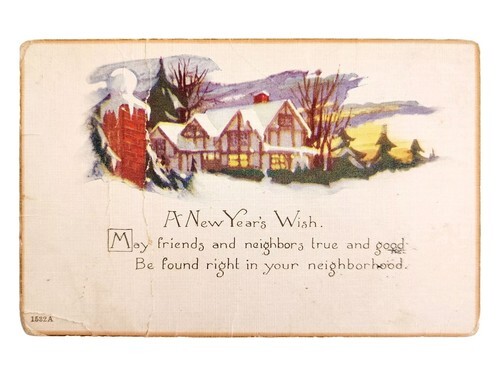 A New Year's Wish.
May friends and neighbors true and good
Be found right in your neighborhood.
1522A